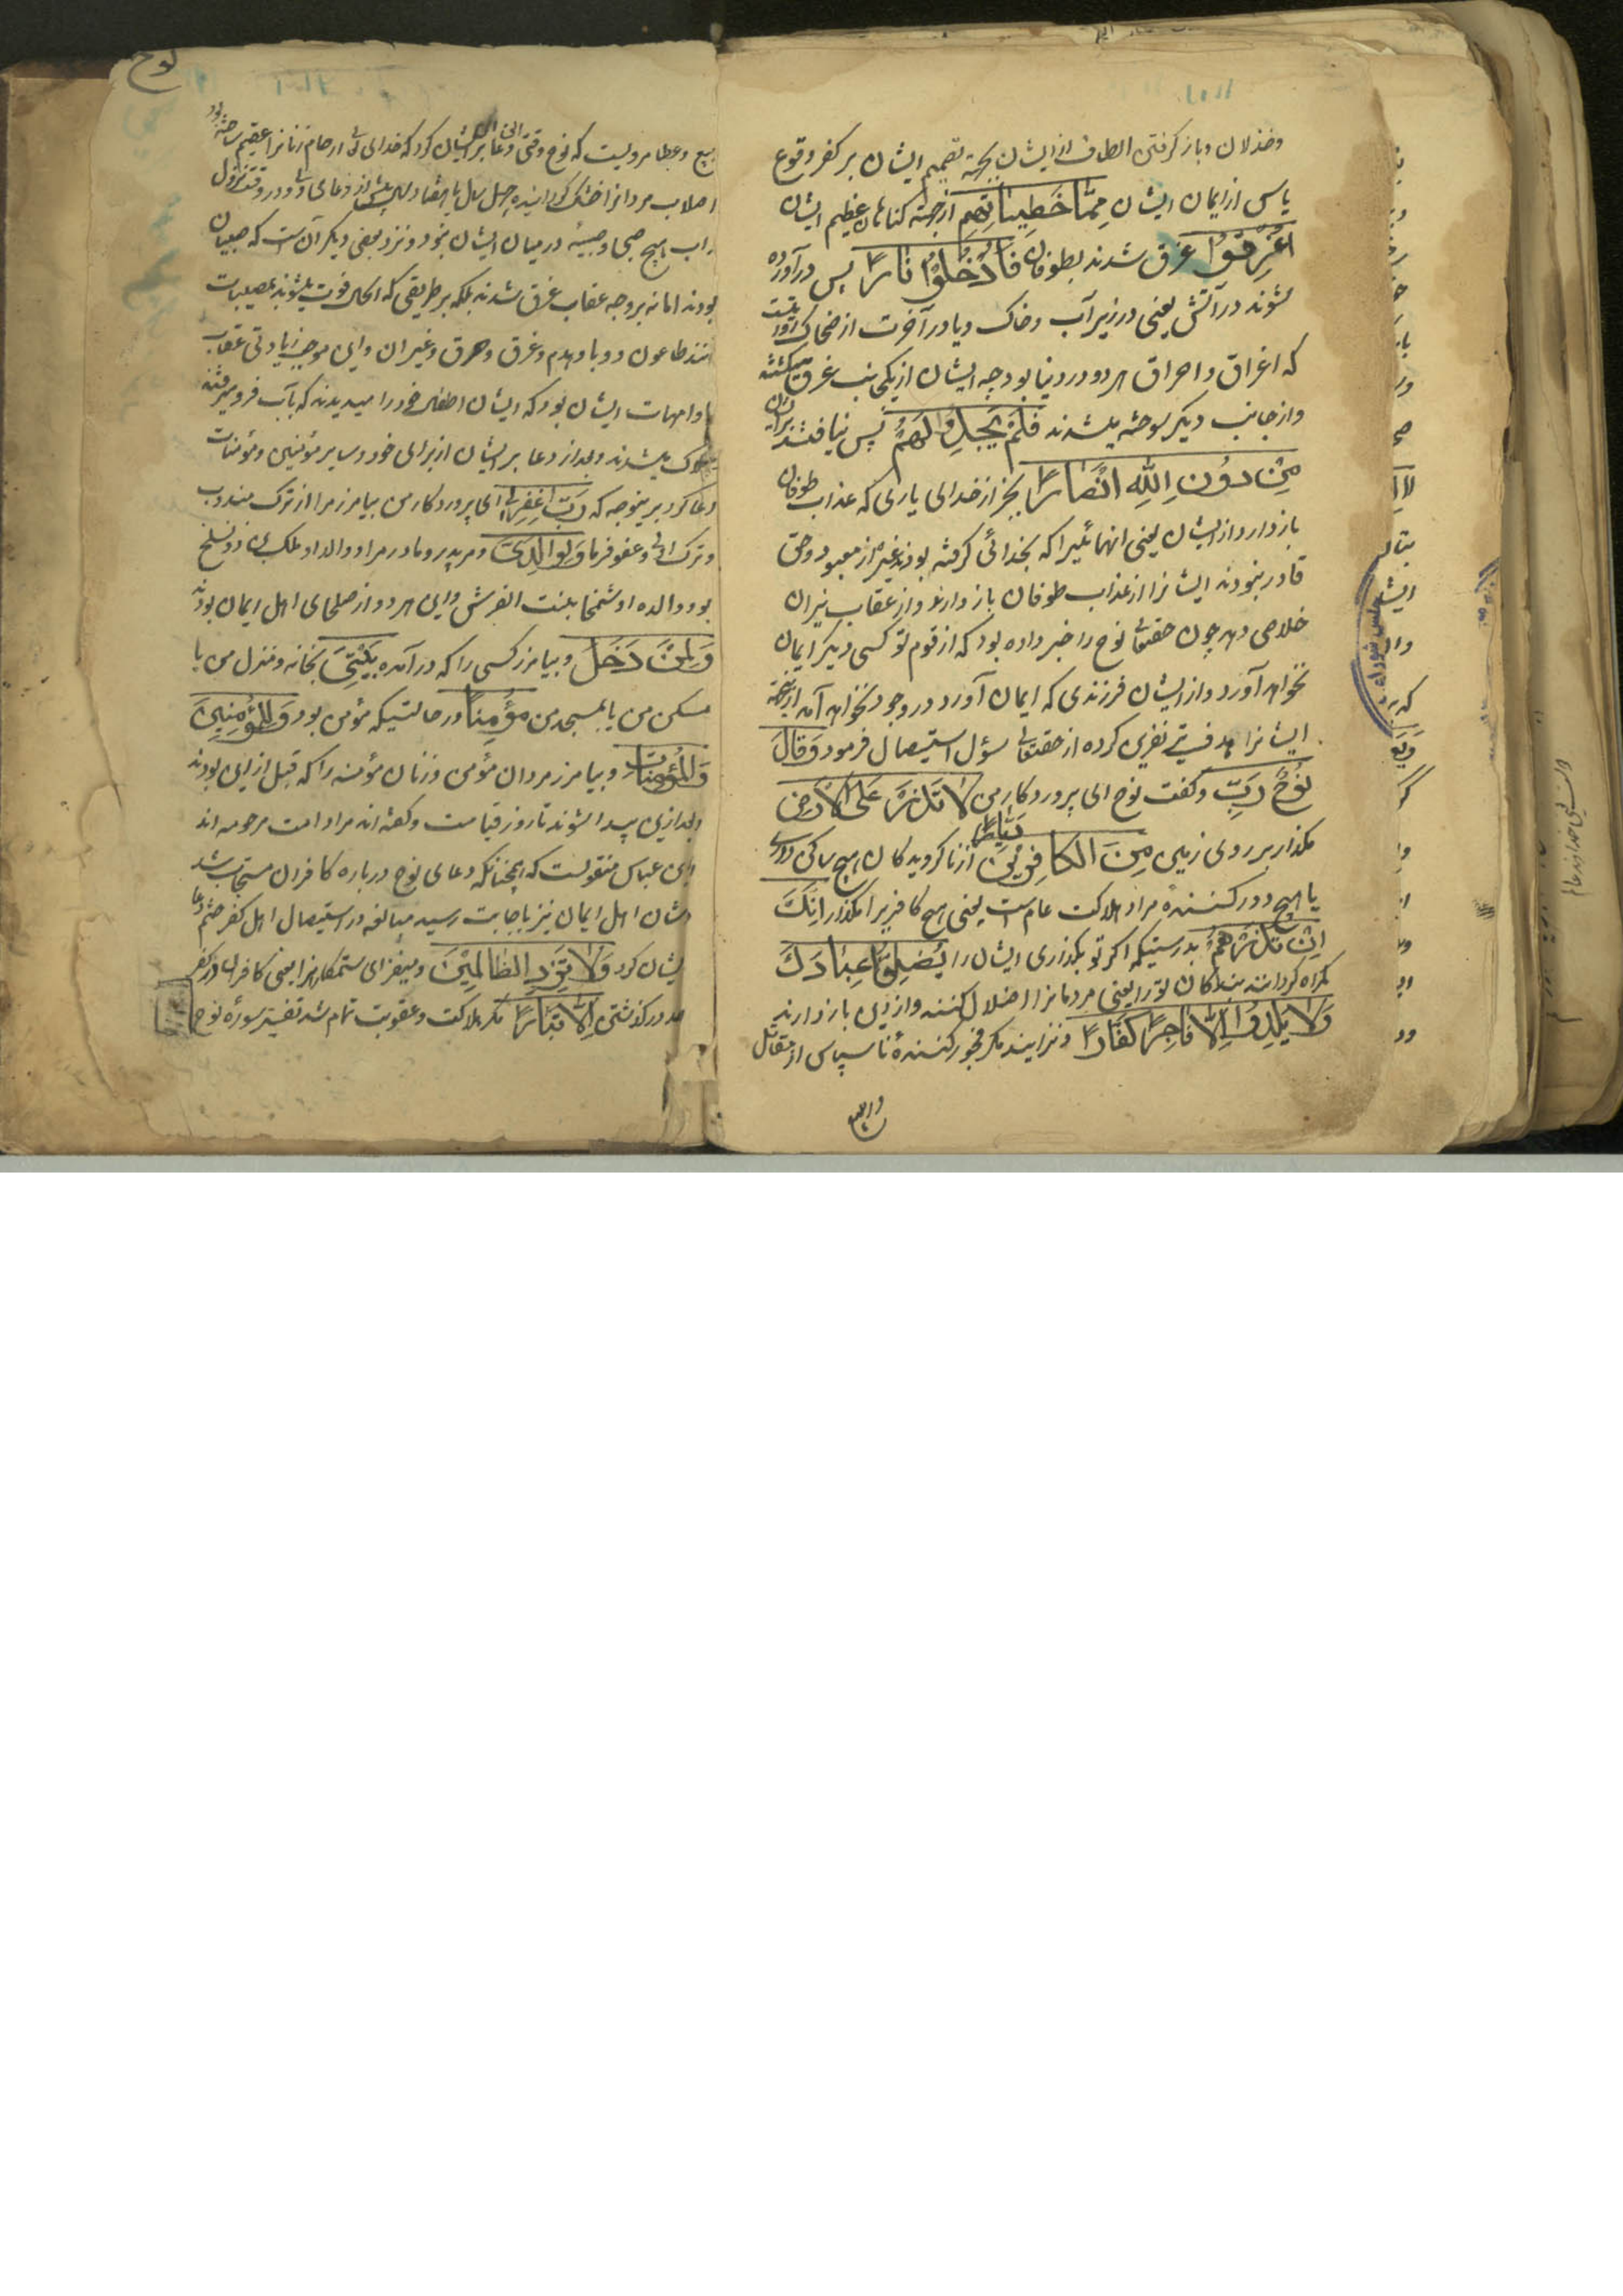 وخذلان وباز گرفتن الطاف از ایشان بجهة تصمیم ایشان بر کفر و قوع
یاس از ایمان ایشان مِمَّا خَطِیئَاتِهِم از جهة گناهان عظیم ایشان
اُغْرِقُوا غرق شدند بطوفان فَاُدْخِلُوا نَارًا پس درآورده
شوند در آتش یعنی در زیر آب وخاک ویا در آخرت از ضحاک
که اغراق و احراق هر دو در دنیا بود چه ایشان از یکجانب غرق میگشتند
واز جانب دیگر سوخته میشدند فَلَمْ یَجِدُوا لَهُمْ پس نیافتند برای ایشان
مِنْ دُونِ اللهِ اَنْصَارًا بجز از خدای یاری که عذاب طوفان
باز دارد از ایشان یعنی آنهائیرا که بخدائی گرفته بودند غیر از معبود و حق
قادر نبودند ایشانرا از عذاب طوفان باز دارند واز عقاب نیران
خلاصی دهد چون حقتعالی نوح را خبر داده بود که از قوم تو کسی دیگر ایمان
نخواهد آورد واز ایشان فرزندی که ایمان آورد در وجود نخواهد آمد از اینجهة
ایشانرا نفرین کرده از حقتعالی سؤل استیصال فرمود وَقَالَ
نُوحٌ رَبِّ وگفت نوح ای پروردگار من لَا تَذَرْ عَلَی الْاَرْضِ
مگذار بر روی زمین مِنَ الْکَافِرِینَ دَیَّارًا از ناگرویدگان هیچ ساکن
یا هیچ دور کننده مراد هلاکت عام است یعنی هیچ کافریرا مگذار اِنَّکَ
اِنْ تَذَرْهُمْ بدرستیکه اگر تو بگذاری ایشان را یُضِلُّوا عِبَادَکَ
گمراه گردانند بندگان تو را یعنی مردمانرا اضلال کنند واز دین باز دارند
وَلَا یَلِدُوا اِلَّا فَاجِرًا کَفَّارًا ونزایند مگر فجور کنندهٔ ناسپاس از مقاتل
وربیع
نوح
ربیع وعطا مرویست که نوح وقتی دعا بر ایشان کرد که خدای ارحام زنانرا عقیم ساخته بود
اصلاب مردانرا خشک گردانیده چهل سال یا هفتاد سال پیش از دعای و در وقت نزول
عذاب هیچ صبی و صبیّه در میان ایشان نبود ونزد بعضی دیگر آن است که صبیان
بودند اما نه بر وجه عقاب غرق شدند بلکه بر طریقی که الحال فوت میشوند بمصیبات
مانند طاعون و وبا وهدم وغرق وحرق وغیر آن واین موجب زیادتی عقاب
آبا وامهات ایشان بود که ایشان اطفال خود را میدیدند که بآب فرو میرفتند
وهلاک میشدند وبعد از دعا بر ایشان از برای خود وسایر مؤمنین ومؤمنات
دعا کرد برینوجه که رَبِّ اغْفِرْلِی ای پروردگار من بیامرز مرا از ترک مندوب
وترک اولی وعفو فرما وَلِوَالِدَیَّ ومر پدر ومادر مرا و والد او ملک بن
بود و والده او شمخا بنت انوش واین هر دو از صلحای اهل ایمان بودند
وَلِمَنْ دَخَلَ وبیامرز کسی را که درآمده بَیْتِیَ بخانه ومنزل من یا
مسکن من یا بمسجد من مُؤْمِنًا در حالتیکه مؤمن بود وَلِلْمُؤْمِنِینَ
وَالْمُؤْمِنَاتِ وبیامرز مردان مؤمن وزنان مؤمنه را که قبل از این بودند
وبعد ازین پیدا شوند تا روز قیامت وگفته اند مراد امت مرحومه اند
ابن عباس منقولست که همچنانکه دعای نوح درباره کافران مستجاب شد
در شان اهل ایمان نیز باجابت رسید مبالغه در استیصال اهل کفر ختم دعا
ایشان کرد وَلَا تَزِدِ الظَّالِمِینَ ومیفزای ستمکارانرا یعنی کافران در کفر
حد در گذشتن اِلَّا تَبَارًا مگر هلاکت وعقوبت تمام شد تفسیر سورهٔ نوح